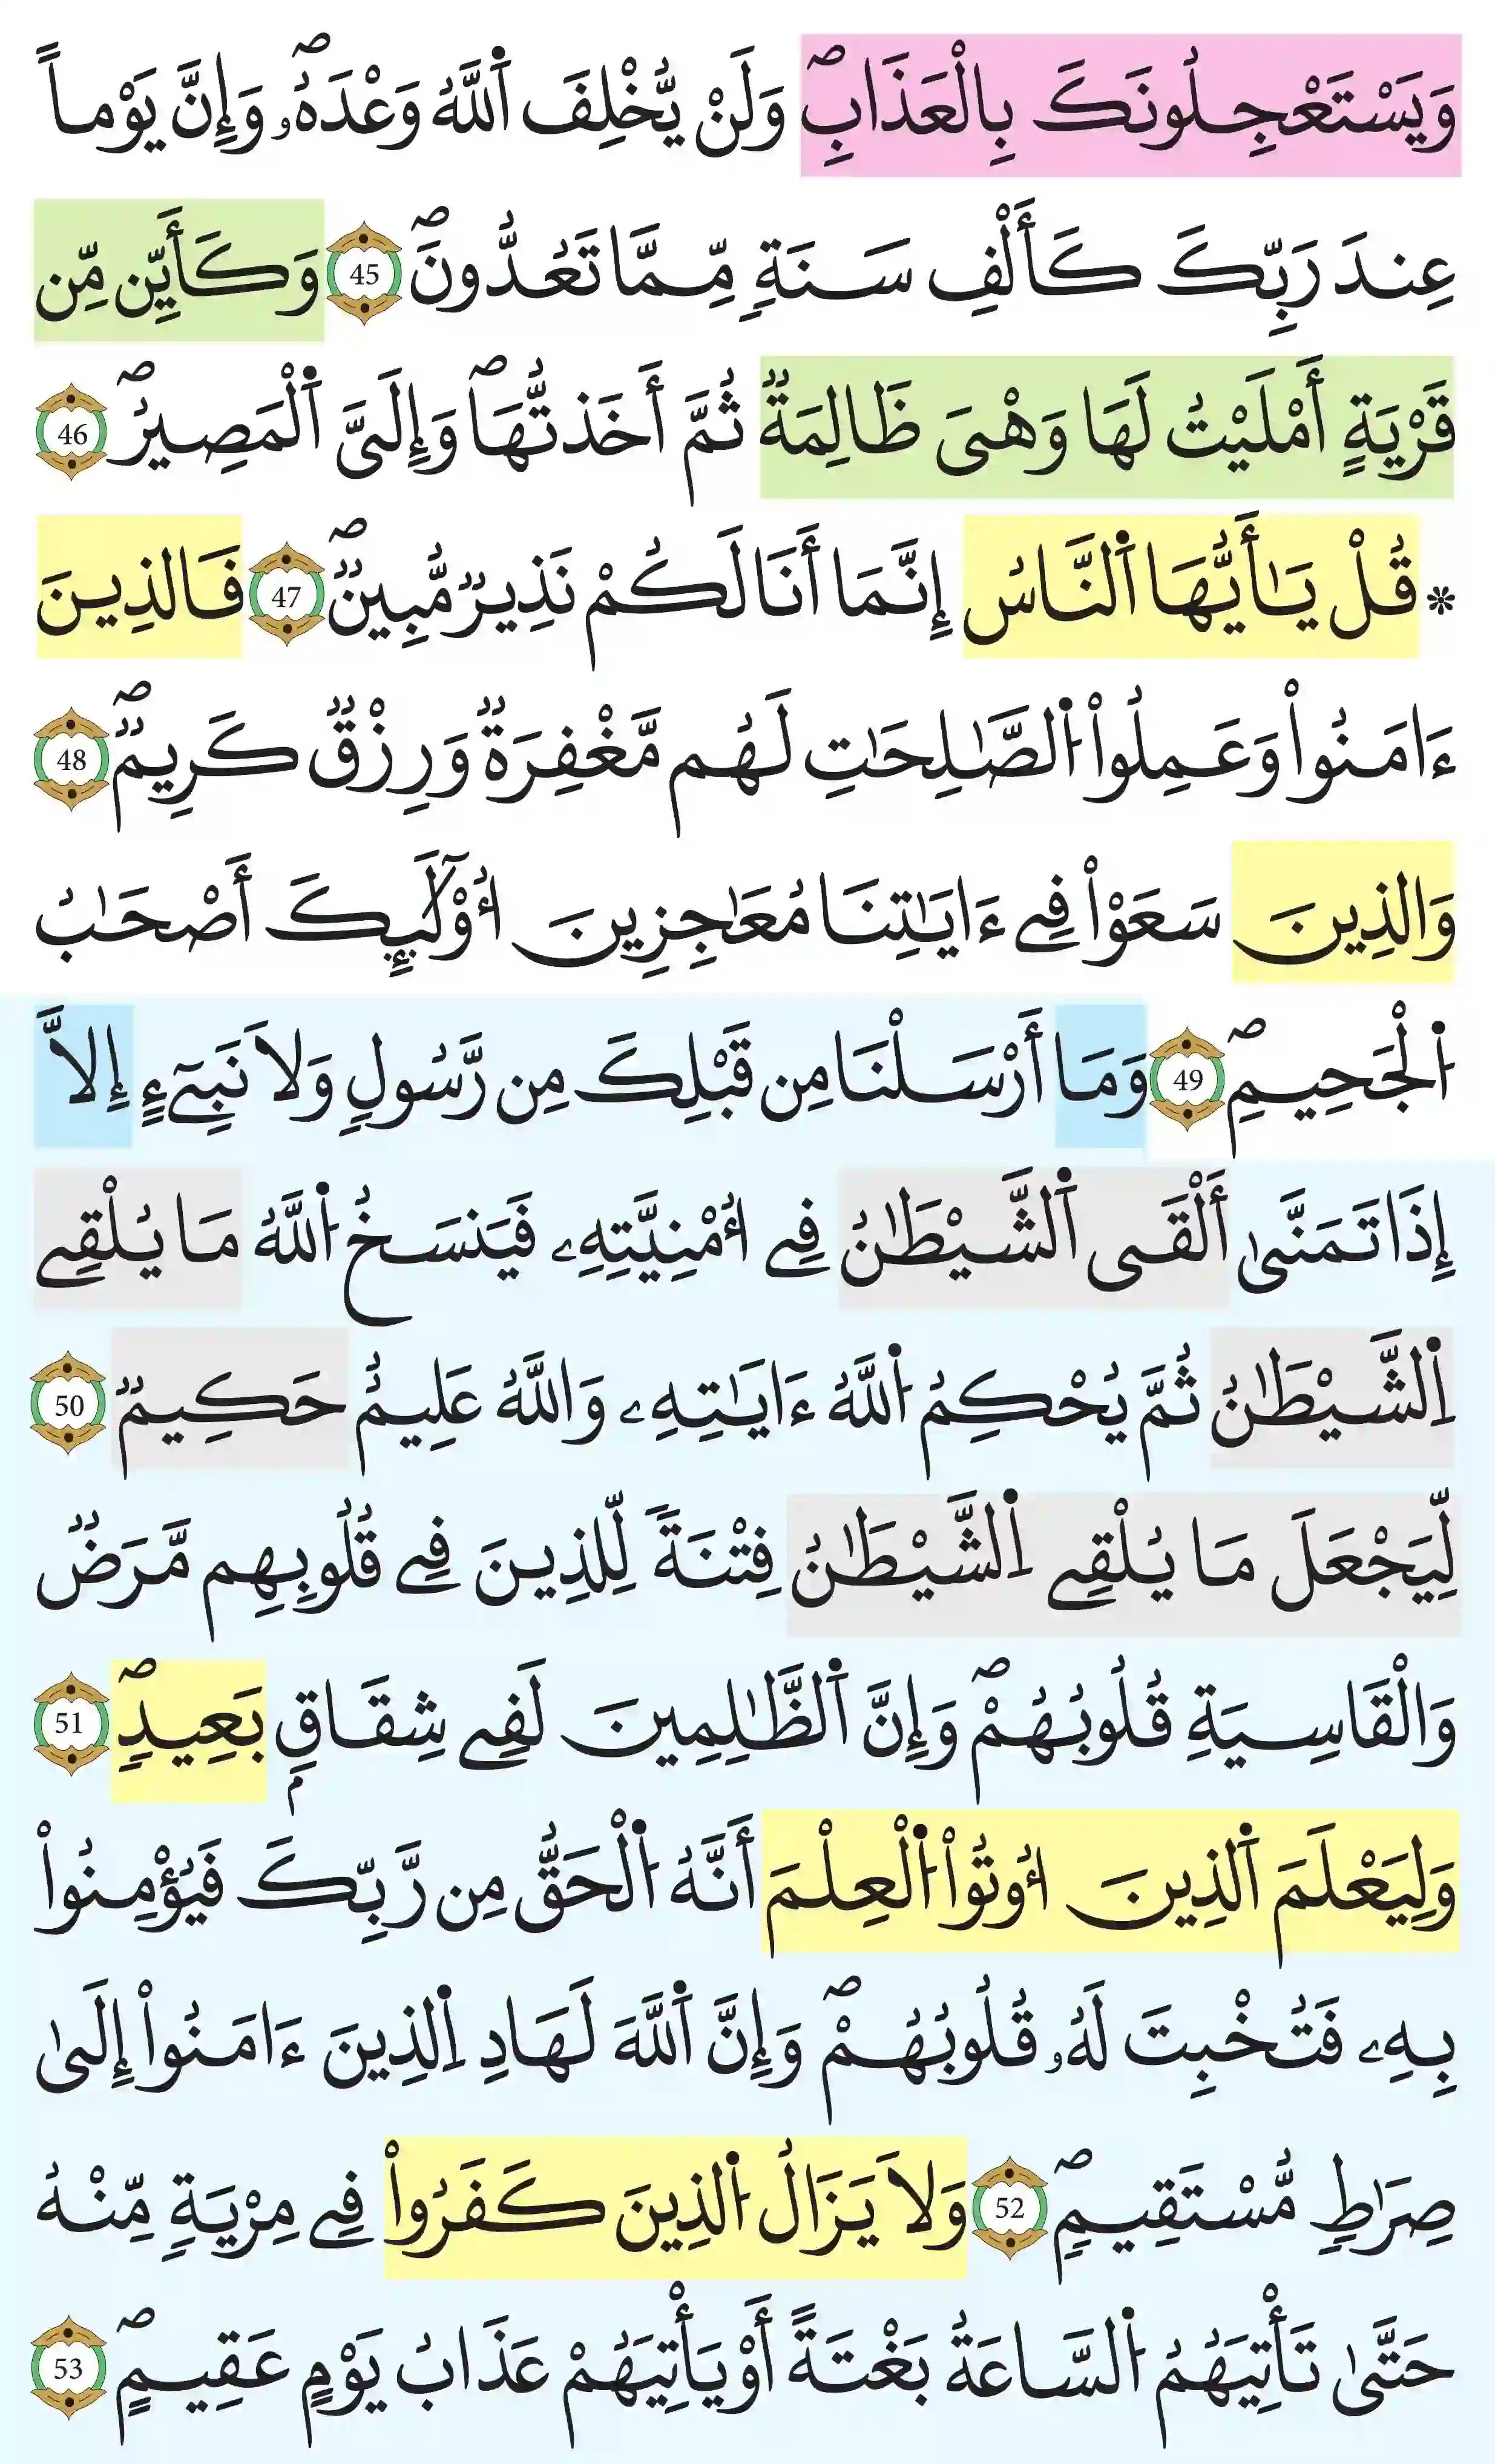 وَيَسْتَعْجِلُونَكَ بِالْعَذَابِۖ وَلَنْ يُّخْلِفَ اَ۬للَّهُ وَعْدَهُۥۖ وَإِنَّ يَوْماً
عِندَ رَبِّكَ كَأَلْفِ سَنَةٖ مِّمَّا تَعُدُّونَۖ 45 وَكَأَيِّن مِّن
قَرْيَةٍ أَمْلَيْتُ لَهَا وَهْىَ ظَالِمَةٞ ثُمَّ أَخَذتُّهَاۖ وَإِلَىَّ اَ۬لْمَصِيرُۖ 46
* قُلْ يَٰأَيُّهَا اَ۬لنَّاسُ إِنَّمَا أَنَا لَكُمْ نَذِيرٞ مُّبِينٞۖ 47 فَالذِينَ
ءَامَنُواْ وَعَمِلُواْ اُ۬لصَّٰلِحَٰتِ لَهُم مَّغْفِرَةٞ وَرِزْقٞ كَرِيمٞۖ 48
وَالذِينَ سَعَوْاْ فِے ءَايَٰتِنَا مُعَٰجِزِينَ أُوْلَٰٓئِكَ أَصْحَٰبُ
اُ۬لْجَحِيمِۖ 49 وَمَا أَرْسَلْنَا مِن قَبْلِكَ مِن رَّسُولٖ وَلَا نَبِيٓءٍ إِلَّا
إِذَا تَمَنَّىٰ أَلْقَى اَ۬لشَّيْطَٰنُ فِے أُمْنِيَّتِهِۦ فَيَنسَخُ اُ۬للَّهُ مَا يُلْقِے
اِ۬لشَّيْطَٰنُ ثُمَّ يُحْكِمُ اُ۬للَّهُ ءَايَٰتِهِۦ وَاللَّهُ عَلِيمٌ حَكِيمٞ 50
لِّيَجْعَلَ مَا يُلْقِے اِ۬لشَّيْطَٰنُ فِتْنَةٗ لِّلذِينَ فِے قُلُوبِهِم مَّرَضٞ
وَالْقَاسِيَةِ قُلُوبُهُمْۖ وَإِنَّ اَ۬لظَّٰلِمِينَ لَفِے شِقَاقِۢ بَعِيدٖۖ 51
وَلِيَعْلَمَ اَ۬لذِينَ أُوتُواْ اُ۬لْعِلْمَ أَنَّهُ اُ۬لْحَقُّ مِن رَّبِّكَ فَيُؤْمِنُواْ
بِهِۦ فَتُخْبِتَ لَهُۥ قُلُوبُهُمْۖ وَإِنَّ اَ۬للَّهَ لَهَادِ اِ۬لذِينَ ءَامَنُواْ إِلَىٰ
صِرَٰطٖ مُّسْتَقِيمٖۖ 52 وَلَا يَزَالُ اُ۬لذِينَ كَفَرُواْ فِے مِرْيَةٖ مِّنْهُ
حَتَّىٰ تَأْتِيَهُمُ اُ۬لسَّاعَةُ بَغْتَةً أَوْ يَأْتِيَهُمْ عَذَابُ يَوْمٍ عَقِيمٍۖ 53